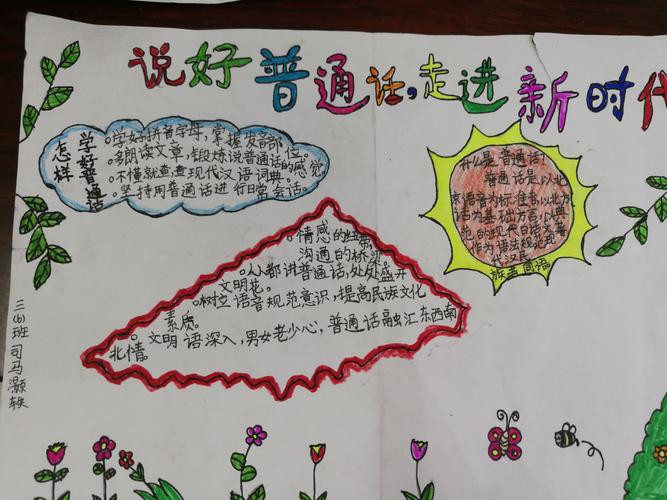 说好普通话,走进新时代
怎样
学好普通话
。学好拼音字母,掌握发音部位。
。多朗读文章,锻炼说普通话的感觉
。不懂就查查现代汉语词典。
。坚持用普通话进行日常会话。
什么是普通话?
普通话是以北
京语音为标准音,以北方
话为基础方言,以典
范的现代白话文著
作为语法规范
代汉民
族共同语。
。情感的纽带,
沟通的桥梁。
。人人都讲普通话,处处盛开
文明花。
。树立语音规范意识,提高民族文化
素质。
。文明语深入,男女老少心,普通话融汇东西南
北情。
三(6)班 司马灏轶